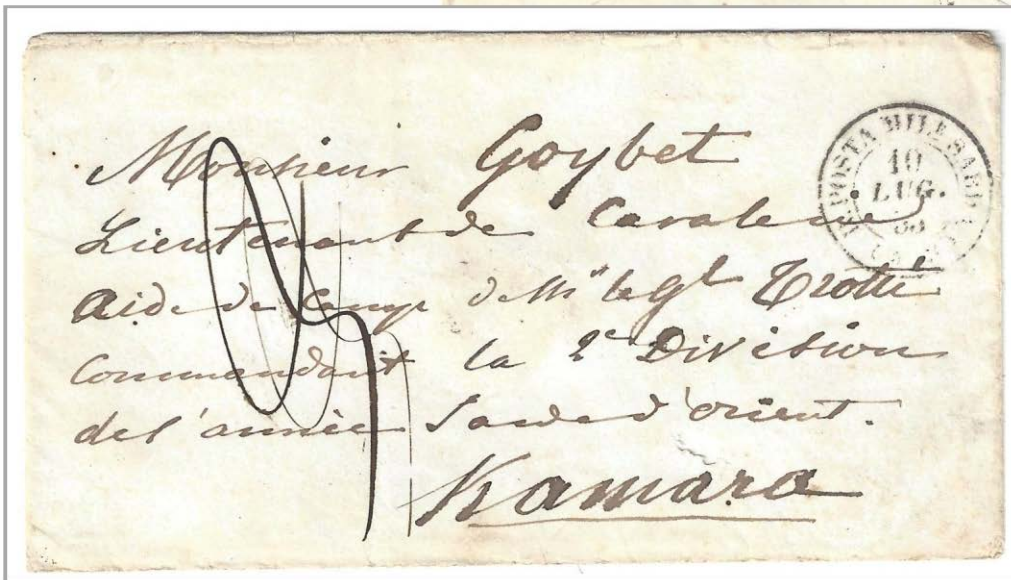 Monsieur Goybet
Lieutenant de Cavalerie
Aide de Camp de Mr le Gl Trotti
Commandant la 2e Division
del'armée Sarde d'orient.
Kamara
POSTA MILE SARDA
10
LUG.
55